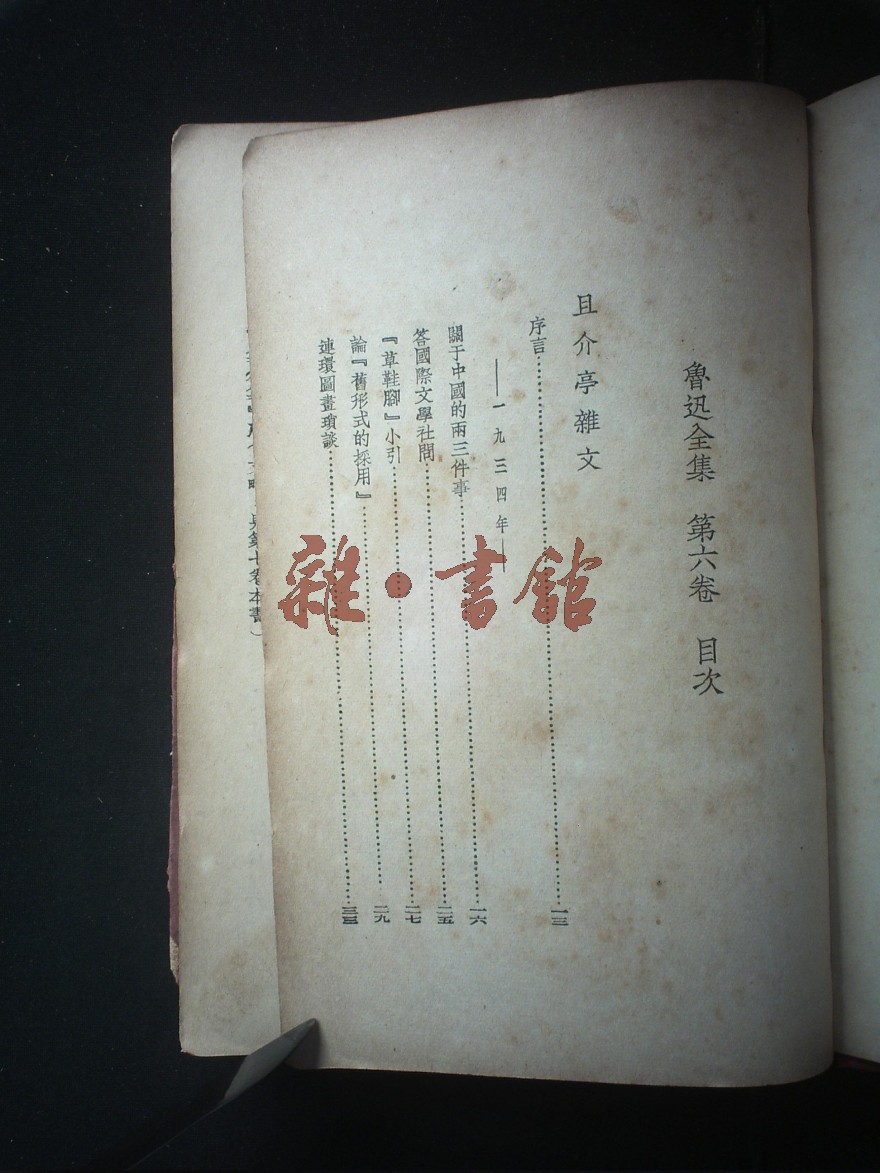 魯迅全集 第六卷 目次
且介亭雜文
序言…………一三
——一九三四年——
關于中國的兩三件事…………一六
答國際文學社問…………二五
『草鞋腳』小引…………二七
論『舊形式的採用』…………二九
連環圖畫瑣談…………三三
雜·書館
卷本書）